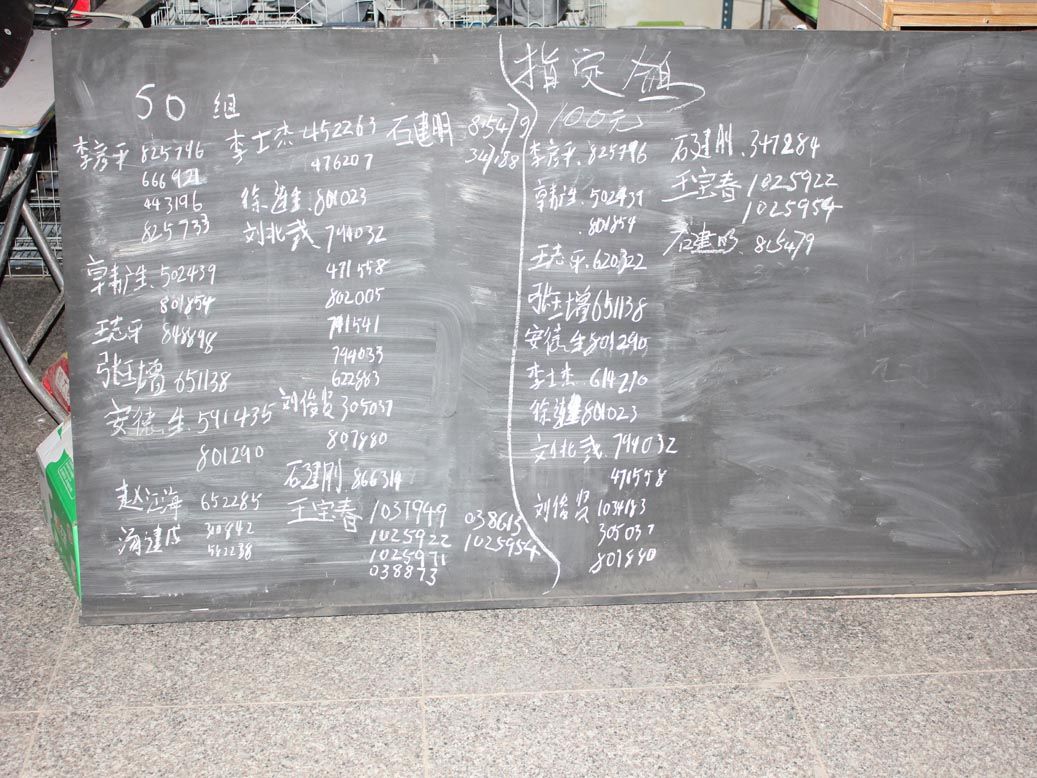 50组
李彦平 825796
666921
443196
825733
郭新生.502439
801854
王志平 848898
张玉增 651138
安德生.591435
801290
赵江海 652285
海建成 310842
542238
李士杰 452263
476207
徐进生.801023
刘北战 794032
471558
802005
741541
794033
622883
刘俊贤 305037
807880
石建刚.866314
王宗春 1037949
1025922
1025971
038873
038615
1025954
石建明 815479
347188
指定组
100元
李彦平.825796
郭新生.502439
801854
王志平.620322
张玉增 651138
安德生 801290
李士杰.614210
徐进生 801023
刘北战 794032
471558
刘俊贤 1034183
305037
807880
石建刚.347284
王宗春 1025922
1025954
石建明.815479